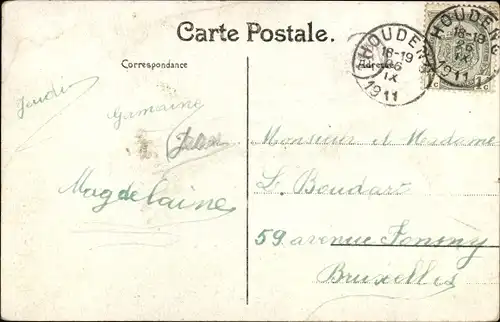 Carte Postale.
Correspondance
HOUDEN
18-19
26
IX
1911
HOUDEN
18-19
26
IX
1911
Jeudi
Germaine
Jean
Magdelaine
Monsieur et Madame
L. Boudart
59 avenue Fonsny
Bruxelles